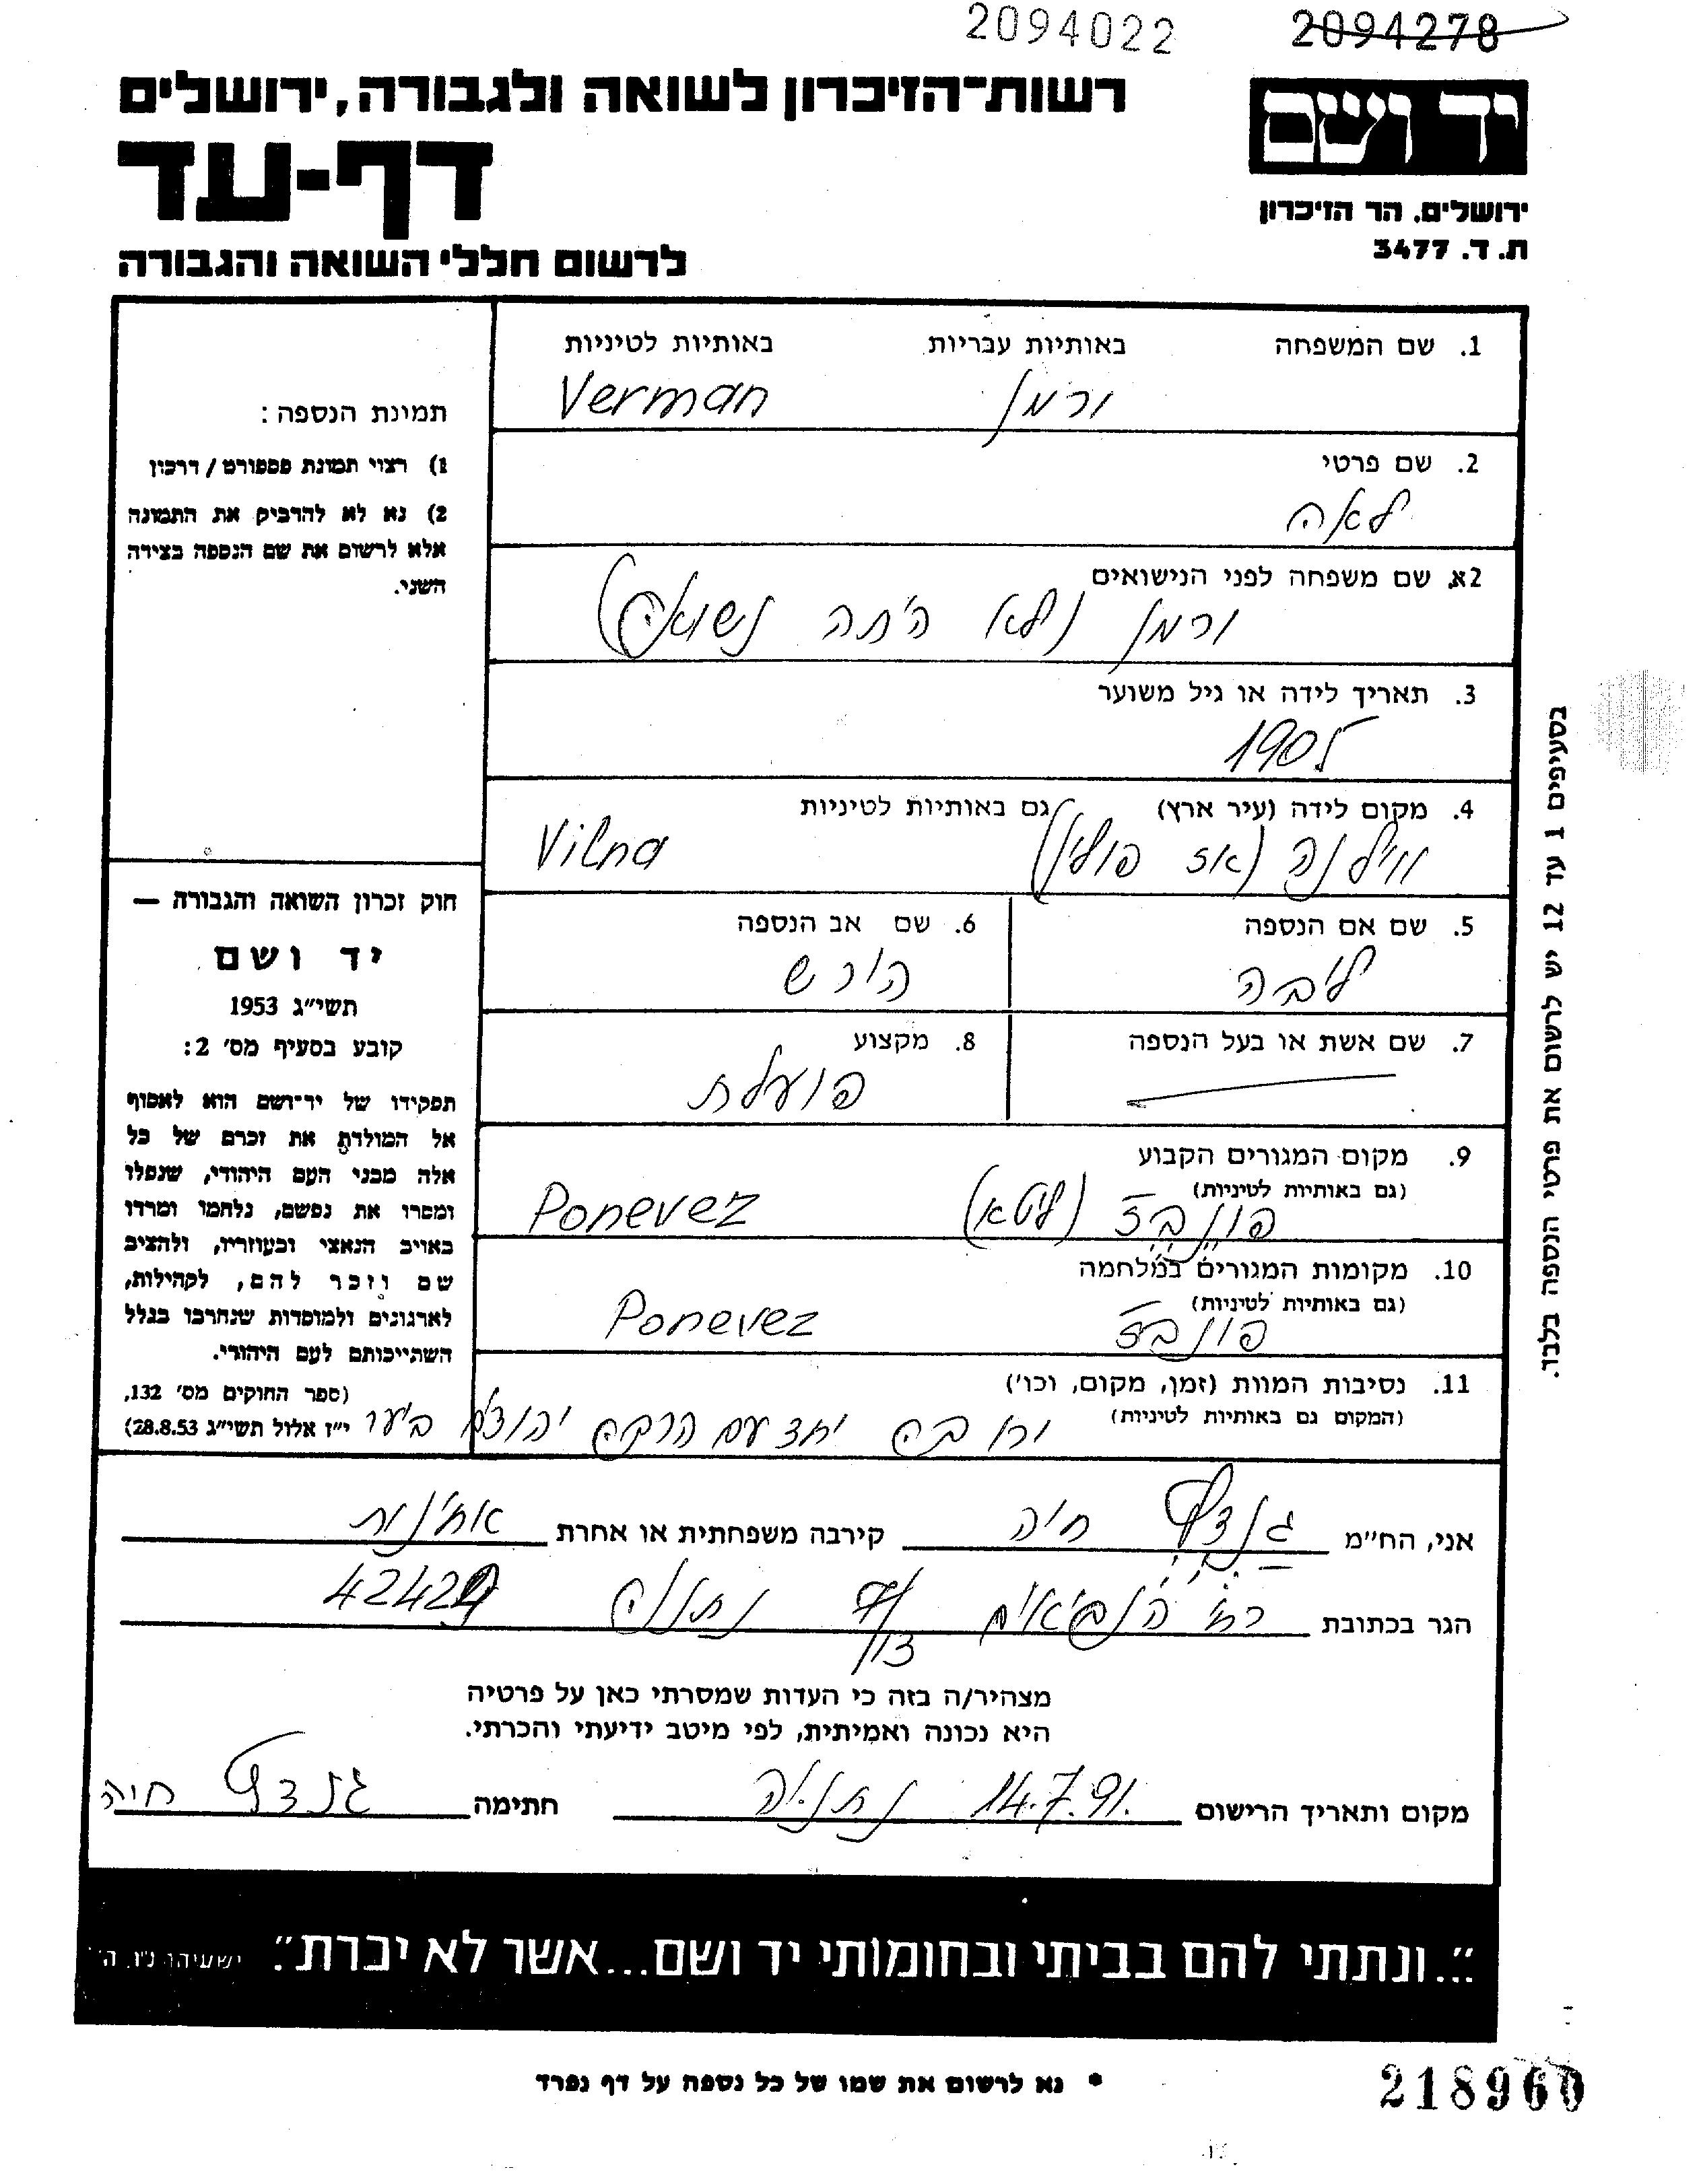 2094022 2094278
יד ושם
ירושלים. הר הזיכרון
ת. ד. 3477
רשות־הזיכרון לשואה ולגבורה, ירושלים
דף-עד
לרשום חללי השואה והגבורה
1. שם המשפחה באותיות עבריות באותיות לטיניות
ורמן Verman
2. שם פרטי
לאה
2א. שם משפחה לפני הנישואים
ורמן (לא היתה נשואה)
3. תאריך לידה או גיל משוער
1905
4. מקום לידה (עיר ארץ) גם באותיות לטיניות
ווילנה (אז פולין) Vilna
5. שם אם הנספה 6. שם אב הנספה
ליבה הירש
7. שם אשת או בעל הנספה 8. מקצוע
פועלת
9. מקום המגורים הקבוע
(גם באותיות לטיניות)
פונבז (ליטא) Ponevez
10. מקומות המגורים במלחמה
(גם באותיות לטיניות)
פונבז Ponevez
11. נסיבות המוות (זמן, מקום, וכו')
(המקום גם באותיות לטיניות)
יחד עם הרבה יהודים ביער
תמונת הנספה:
1) רצוי תמונת פספורט / דרכון
2) נא לא להדביק את התמונה
אלא לרשום את שם הנספה בצידה
השני.
חוק זכרון השואה והגבורה —
יד ושם
תשי״ג 1953
קובע בסעיף מס׳ 2:
תפקידו של יד־ושם הוא לאסוף
אל המולדת את זכרם של כל
אלה מבני העם היהודי, שנפלו
ומסרו את נפשם, נלחמו ומרדו
באויב הנאצי ובעוזריו, ולהציב
שם וזכר להם, לקהילות,
לארגונים ולמוסדות שנחרבו בגלל
השתייכותם לעם היהודי.
(ספר החוקים מס׳ 132,
י״ז אלול תשי״ג 28.8.53)
בסעיפים 1 עד 12 יש לרשום את פרטי הנספה בלבד.
אני, הח״מ גנדלף חיה קירבה משפחתית או אחרת אחינית
הגר בכתובת רח׳ הנביאים נתניה
מצהיר/ה בזה כי העדות שמסרתי כאן על פרטיה
היא נכונה ואמיתית, לפי מיטב ידיעתי והכרתי.
מקום ותאריך הרישום 14.7.91. נתניה חתימה חיה
״...ונתתי להם בביתי ובחומותי יד ושם...אשר לא יכרת״. ישעיהו נ״ו, ה׳
* נא לרשום את שמו של כל נספה על דף נפרד
218960